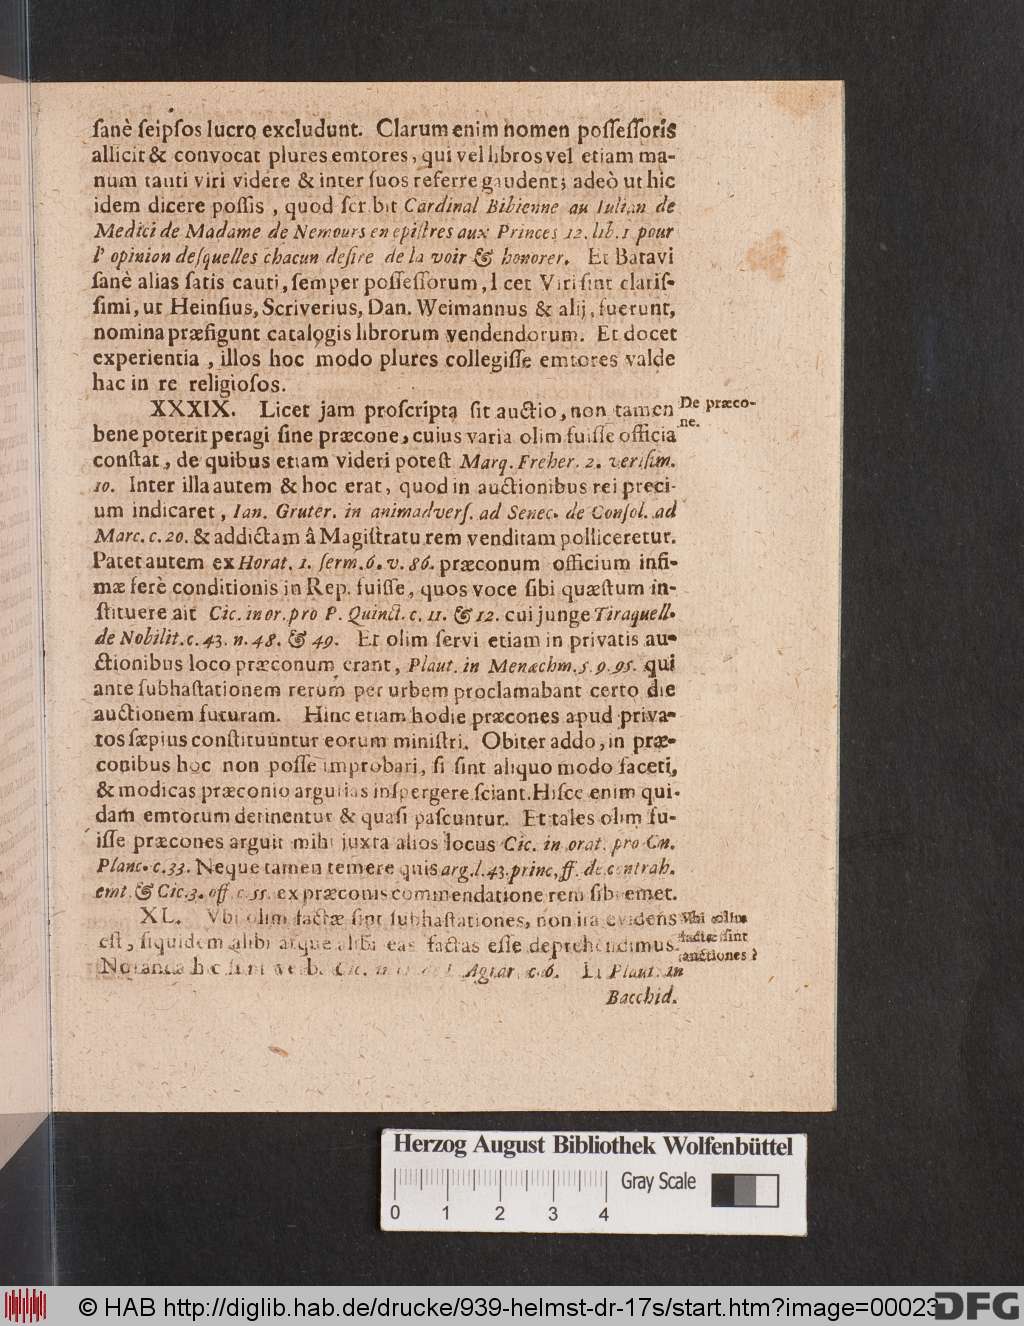 ſanè ſeipſos lucro excludunt. Clarum enim nomen poſſeſſoris
allicit & convocat plures emtores, qui vel libros vel etiam ma-
num tanti viri videre & inter ſuos referre gaudent; adeò ut hîc
idem dicere poſſis, quod ſcribit Cardinal Bibienne au Iulian de
Medici de Madame de Nemours en epiſtres aux Princes 12. lib. 1 pour
l' opinion deſquelles chacun deſire de la voir & honorer. Et Batavi
ſanè alias ſatis cauti, ſemper poſſeſſorum, licet Viri ſint clariſ-
ſimi, ut Heinſius, Scriverius, Dan. Weimannus & alij, fuerunt,
nomina præfigunt catalogis librorum vendendorum. Et docet
experientia, illos hoc modo plures collegiſſe emtores valde
hac in re religioſos.
XXXIX. Licet jam proſcripta ſit auctio, non tamen De præco-
bene poterit peragi ſine præcone, cuius varia olim fuiſſe officia ne.
conſtat, de quibus etiam videri poteſt Marq. Freher. 2. veriſim.
10. Inter illa autem & hoc erat, quod in auctionibus rei preci-
um indicaret, Ian. Gruter. in animadverſ. ad Senec. de Conſol. ad
Marc. c. 20. & addictam â Magiſtratu rem venditam polliceretur.
Patet autem ex Horat. 1. ſerm. 6. v. 86. præconum officium infi-
mæ ferè conditionis in Rep. fuiſſe, quos voce ſibi quæſtum in-
ſtituere ait Cic. in or. pro P. Quinct. c. 11. & 12. cui junge Tiraquell.
de Nobilit. c. 43. n. 48. & 49. Et olim ſervi etiam in privatis au-
ctionibus loco præconum erant, Plaut. in Menæchm. 5. 9. 95. qui
ante ſubhaſtationem rerum per urbem proclamabant certo die
auctionem futuram. Hinc etiam hodie præcones apud priva-
tos ſæpius conſtituuntur eorum miniſtri. Obiter addo, in præ-
conibus hoc non poſſe improbari, ſi ſint aliquo modo faceti,
& modicas præconio argutias inſpergere ſciant. Hiſce enim qui-
dam emtorum detinentur & quaſi paſcuntur. Et tales olim fu-
iſſe præcones arguit mihi juxta alios locus Cic. in orat. pro Cn.
Planc. c. 33. Neque tamen temere quis arg. l. 43. princ. ff. de contrah.
emt. & Cic. 3. off. c. 55. ex præconis commendatione rem ſibi emet.
XL. Vbi olim factæ ſint ſubhaſtationes, non ita evidens Vbi olim
eſt, ſiquidem alibi atque alibi eas factas eſſe deprehendimus. factæ ſint
Notanda hic ſunt verba Cic. in Agrar. c. 6. Et Plaut. in auctiones?
Bacchid.
Herzog August Bibliothek Wolfenbüttel
Gray Scale
0 1 2 3 4
© HAB http://diglib.hab.de/drucke/939-helmst-dr-17s/start.htm?image=00023
DFG